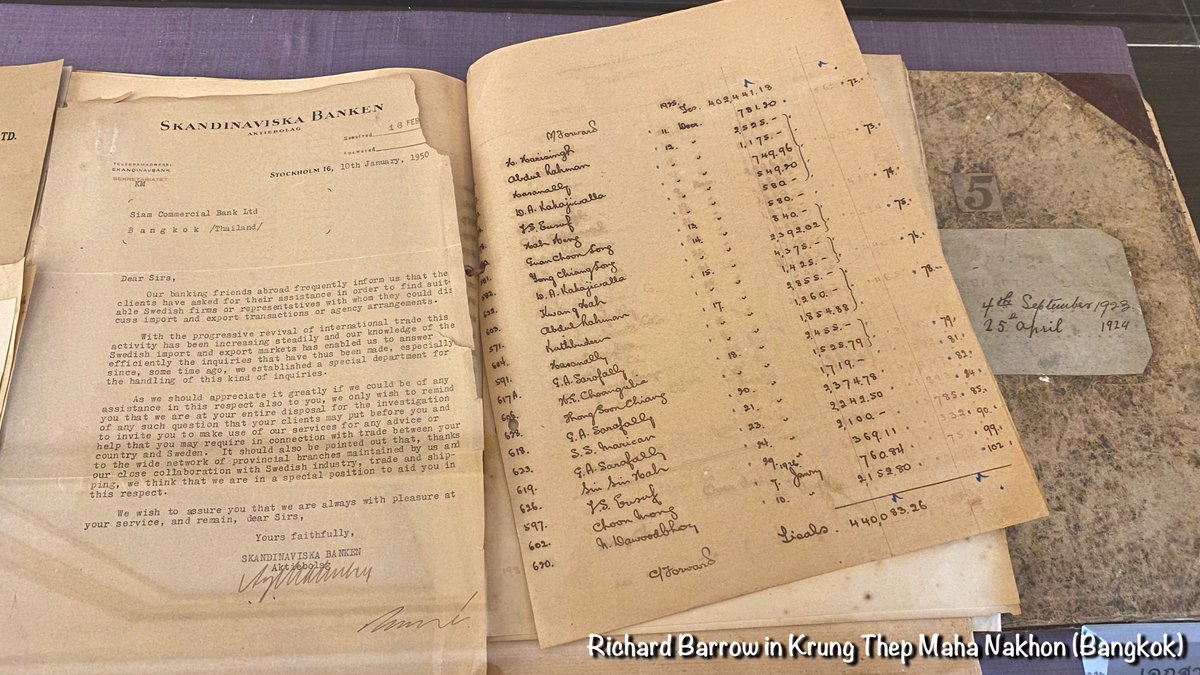 TD.
SKANDINAVISKA BANKEN
AKTIEBOLAG
Received 18 FEB
Answered
TELEGRAMADRESS:
SKANDINAVBANK
SEKRETARIATET
KM
STOCKHOLM 16, 10th January, 1950
Siam Commercial Bank Ltd
Bangkok /Thailand/
Dear Sirs,
Our banking friends abroad frequently inform us that the
clients have asked for their assistance in order to find suit-
able Swedish firms or representatives with whom they could dis
cuss import and export transactions or agency arrangements.
With the progressive revival of international trade this
activity has been increasing steadily and our knowledge of the
Swedish import and export markets has enabled us to answer
efficiently the inquiries that have thus been made, especially
since, some time ago, we established a special department for
the handling of this kind of inquiries.
As we should appreciate it greatly if we could be of any
assistance in this respect also to you, we only wish to remind
you that we are at your entire disposal for the investigation
of any such question that your clients may put before you and
to invite you to make use of our services for any advice or
help that you may require in connection with trade between your
country and Sweden. It should also be pointed out that, thanks
to the wide network of provincial branches maintained by us and
our close collaboration with Swedish industry, trade and ship-
ping, we think that we are in a special position to aid you in
this respect.
We wish to assure you that we are always with pleasure at
your service, and remain, dear Sirs,
Yours faithfully,
SKANDINAVISKA BANKEN
Aktiebolag
B/Forward 1925 Tcs. 402,441.18 72
H. Harisingh 11 Decr. 781.20
Abdul Rahman 12 " 2,525.- 73
Hasanally " " 1,175.-
D. A. Kakajiwalla " " 749.96
V.S. Eusuf " " 549.20 74
Hah Heng 580.-
Guan Choon Long 12 " 580.- 75
Yong Chiang Long 14 " 840.-
D. A. Kakajiwalla " " 2,392.02 76
Kwang Hah 4,375.-
Abdul Rahman 15 " 1,425.- 78
571. Kuthbudeen " " 2,855.-
604. Hasanally 17 " 1,260.-
591. E.A. Sarafally " " 1,854.88 79
617A 2,455.- 81
Thong Soon Chiang 18 " 1,525.79 82
628. E.A. Sarafally 1,719.-
618. S.S. Marican 20 " 2,374.78 85
623. E.A. Sarafally 21 " 2,242.50 90
619. Sin Sin Hah 23 " 2,100.-
626. V.S. Eusuf 24 " 369.11 99
597. Choon Mong 1926 7 Jany 760.84 102
602. N. Dawoodbhoy 10 " 2,152.80
620.
C/Forward Ticals. 440,083.26
5
4th September 1923
25 " april 1924
Richard Barrow in Krung Thep Maha Nakhon (Bangkok)